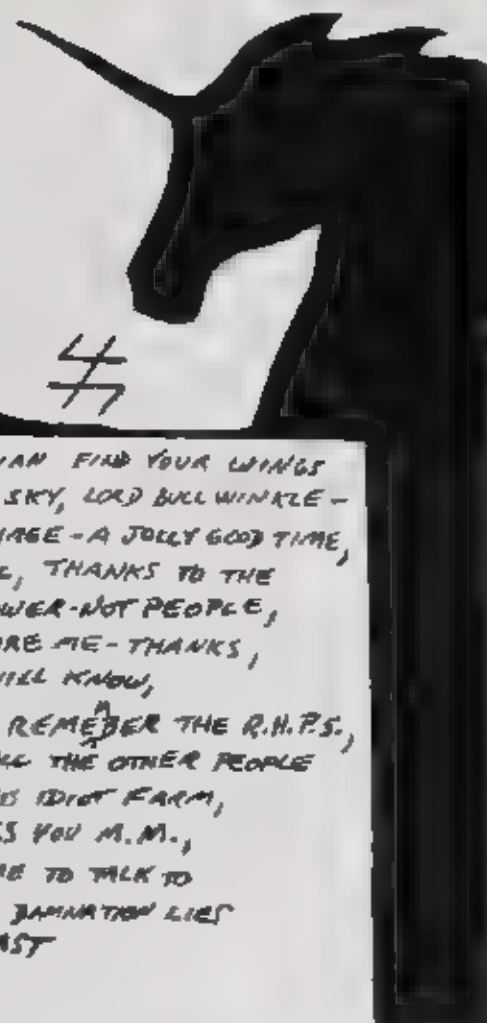 FIND YOUR WINGS
SKY, LORD BULLWINKLE-
-A JOLLY GOOD TIME,
THANKS TO THE
-NOT PEOPLE,
ME-THANKS,
KNOW,
REMEMBER THE R.H.P.S.,
THE OTHER PEOPLE
IDIOT FARM,
YOU M.M.,
TO TALK TO
DAMNATION LIES